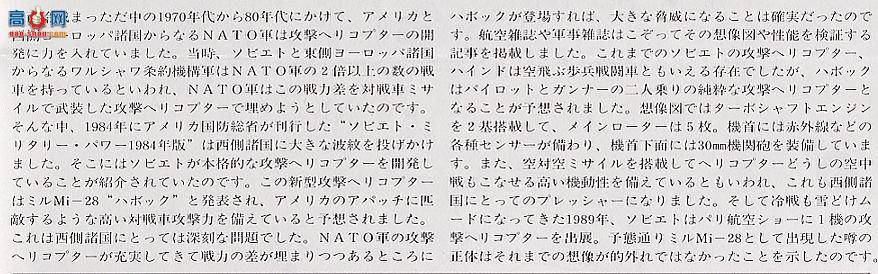 高高网
JINGL
まっただ中の1970年代から80年代にかけて、アメリカと
ロッパ諸国からなるＮＡＴＯ軍は攻撃ヘリコプターの開
発に力を入れていました。当時、ソビエトと東側ヨーロッパ諸国
からなるワルシャワ条約機構軍はＮＡＴＯ軍の２倍以上の数の戦
車を持っているといわれ、ＮＡＴＯ軍はこの戦力差を対戦車ミサ
イルで武装した攻撃ヘリコプターで埋めようとしていたのです。
そんな中、1984年にアメリカ国防総省が刊行した“ソビエト・ミ
リタリー・パワー1984年版”は西側諸国に大きな波紋を投げかけ
ました。そこにはソビエトが本格的な攻撃ヘリコプターを開発し
ていることが紹介されていたのです。この新型攻撃ヘリコプター
はミルMi－28“ハボック”と発表され、アメリカのアパッチに匹
敵するような高い対戦車攻撃力を備えていると予想されました。
これは西側諸国にとっては深刻な問題でした。ＮＡＴＯ軍の攻撃
ヘリコプターが充実してきて戦力の差が埋まりつつあるところに
ハボックが登場すれば、大きな脅威になることは確実だったので
す。航空雑誌や軍事雑誌はこぞってその想像図や性能を検証する
記事を掲載しました。これまでのソビエトの攻撃ヘリコプター、
ハインドは空飛ぶ歩兵戦闘車ともいえる存在でしたが、ハボック
はパイロットとガンナーの二人乗りの純粋な攻撃ヘリコプターと
なることが予想されました。想像図ではターボシャフトエンジン
を２基搭載して、メインローターは５枚。機首には赤外線などの
各種センサーが備わり、機首下面には30㎜機関砲を装備していま
す。また、空対空ミサイルを搭載してヘリコプターどうしの空中
戦もこなせる高い機動性を備えているともいわれ、これも西側諸
国にとってのプレッシャーになりました。そして冷戦も雪どけム
ードになってきた1989年、ソビエトはパリ航空ショーに１機の攻
撃ヘリコプターを出展。予態通りミルMi－28として出現した噂の
正体はそれまでの想像が的外れではなかったことを示したのです。